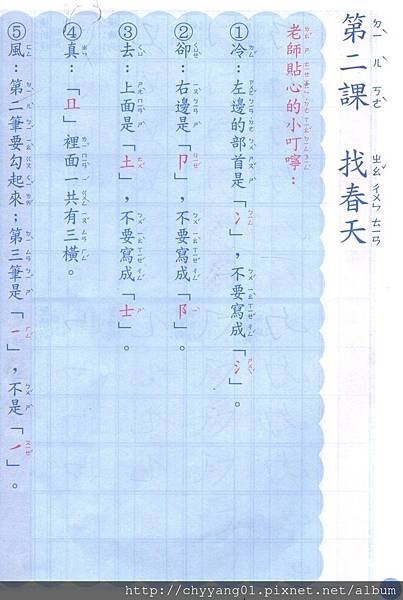 第二課 找春天
老師貼心的小叮嚀：
①冷：左邊的部首是「冫」，不要寫成「氵」。
②卻：右邊是「卩」，不要寫成「阝」。
③去：上面是「土」，不要寫成「士」。
④真：「且」裡面一共有三橫。
⑤風：第二筆要勾起來；第三筆是「㇐」，不是「㇒」。
http://chyyang01.pixnet.net/album